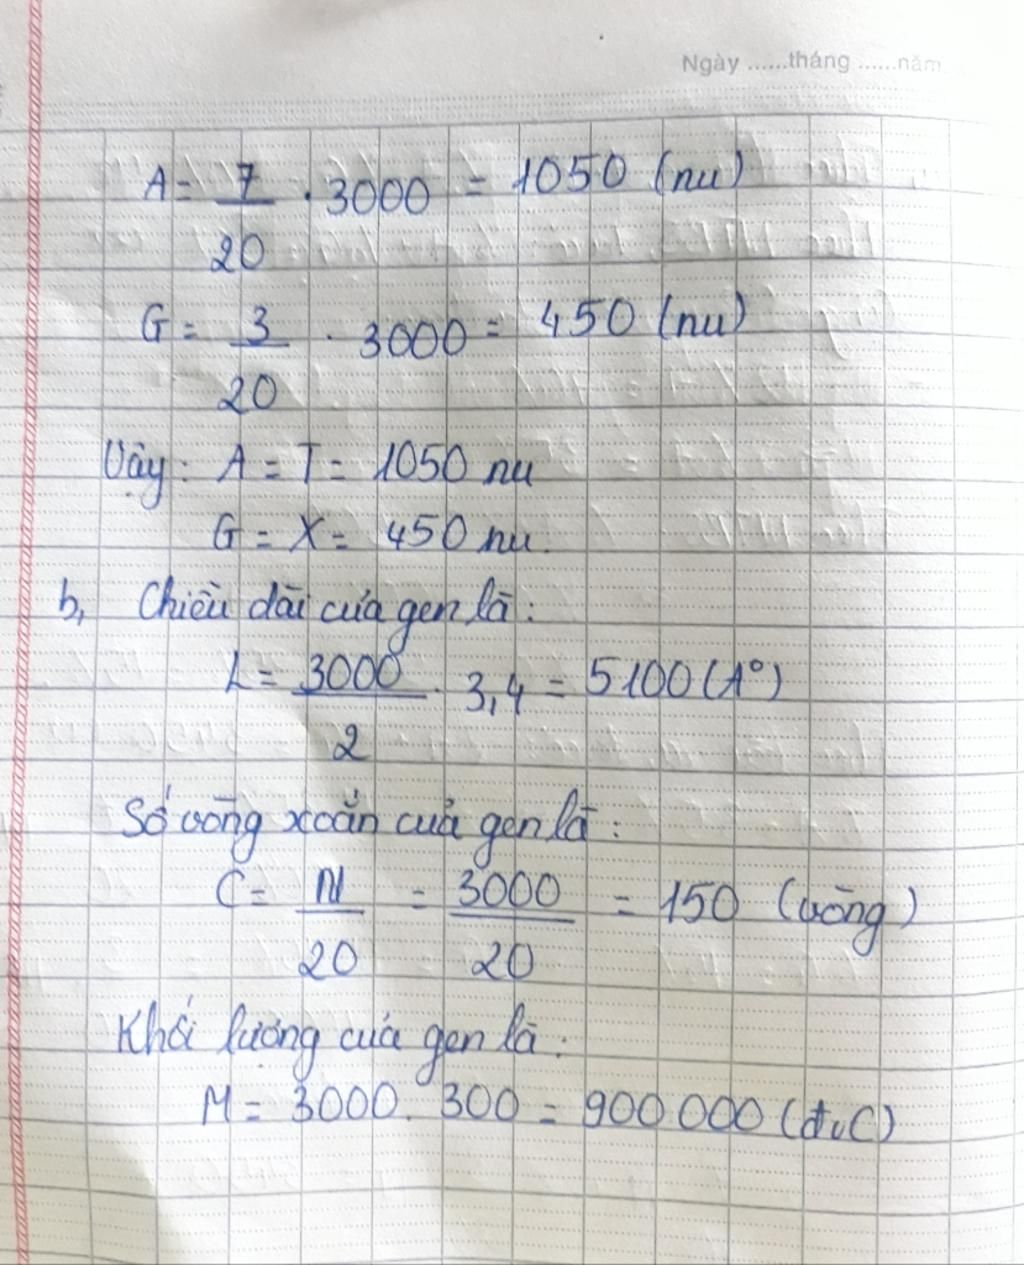 Ngày ......tháng ......năm
A = 7/20 . 3000 = 1050 (nu)
G = 3/20 . 3000 = 450 (nu)
Vậy: A = T = 1050 nu
G = X = 450 nu.
b, Chiều dài của gen là:
L = 3000/2 . 3,4 = 5100 (A°)
Số vòng xoắn của gen là:
C = N/20 = 3000/20 = 150 (vòng)
Khối lượng của gen là:
M = 3000. 300 = 900.000 (đvC)